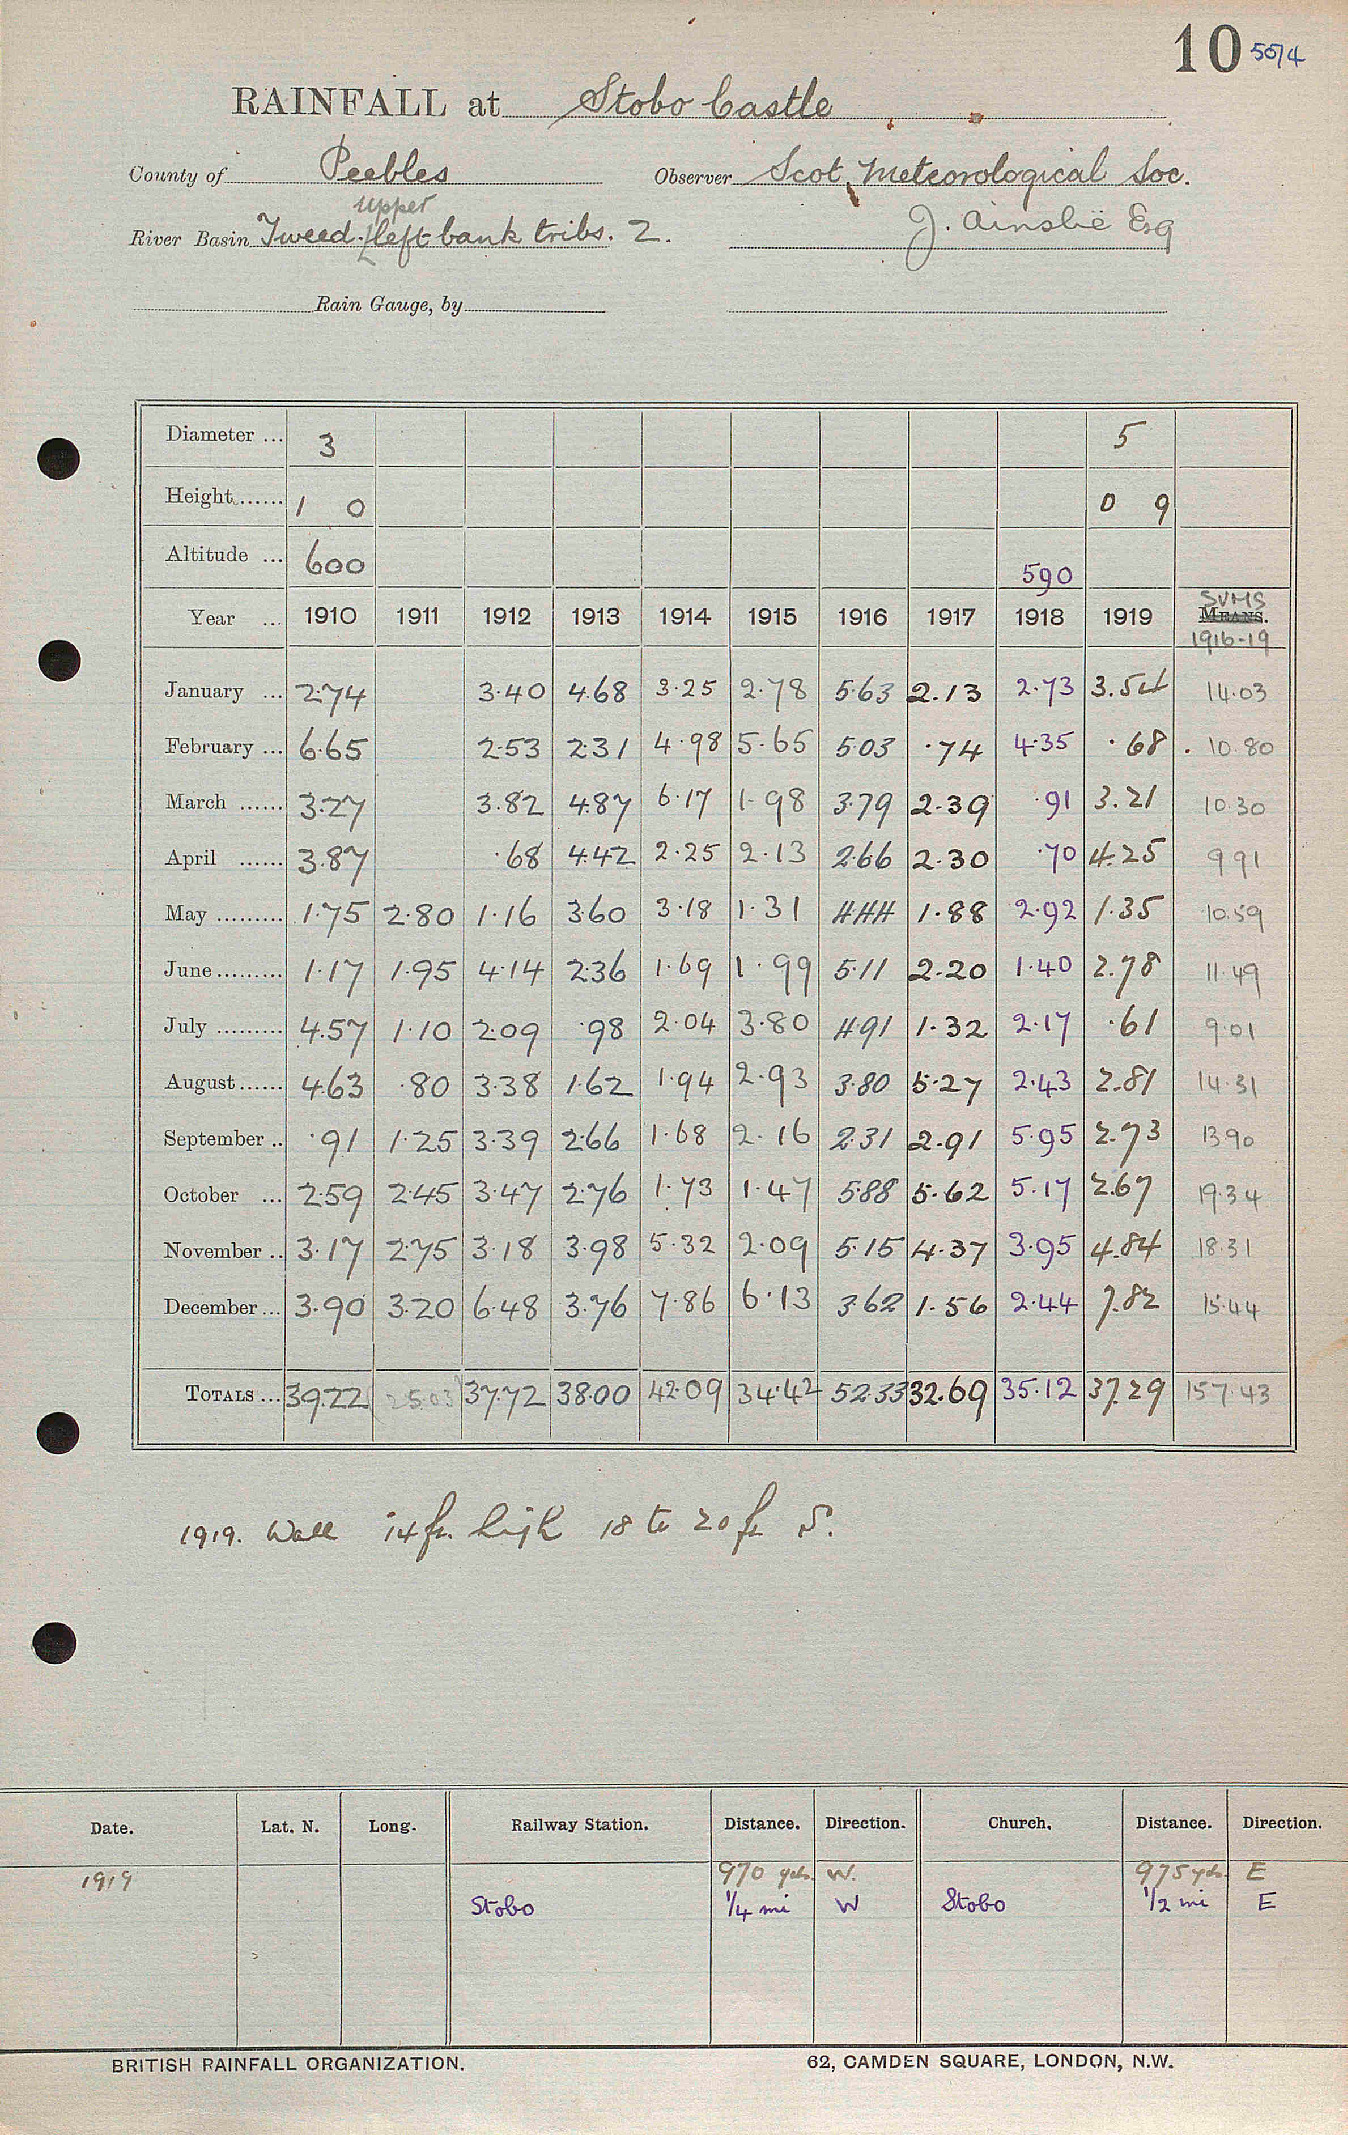 10 5574
RAINFALL at Stobo Castle
County of Peebles Observer Scot. Meteorological Soc.
upper
River Basin Tweed. left bank tribs. 2. J. Ainslie Esq
Rain Gauge, by
Diameter ... 3 5
Height...... 1 0 0 9
Altitude ... 600 590
SUMS
Year ... 1910 1911 1912 1913 1914 1915 1916 1917 1918 1919 MEANS.
1916-19
January ... 2.74 3.40 4.68 3.25 2.78 5.63 2.13 2.73 3.54 14.03
February ... 6.65 2.53 2.31 4.98 5.65 5.03 .74 4.35 .68 10.80
March ...... 3.27 3.82 4.87 6.17 1.98 3.79 2.39 .91 3.21 10.30
April ...... 3.87 .68 4.42 2.25 2.13 2.66 2.30 .70 4.25 9.91
May ......... 1.75 2.80 1.16 3.60 3.18 1.31 4.44 1.88 2.92 1.35 10.59
June ......... 1.17 1.95 4.14 2.36 1.69 1.99 5.11 2.20 1.40 2.78 11.49
July ......... 4.57 1.10 2.09 .98 2.04 3.80 4.91 1.32 2.17 .61 9.01
August...... 4.63 .80 3.38 1.62 1.94 2.93 3.80 5.27 2.43 2.81 14.31
September .. .91 1.25 3.39 2.66 1.68 2.16 2.31 2.91 5.95 2.73 13.90
October ... 2.59 2.45 3.47 2.76 1.73 1.47 5.88 5.62 5.17 2.67 19.34
November .. 3.17 2.75 3.18 3.98 5.32 2.09 5.15 4.37 3.95 4.84 18.31
December ... 3.90 3.20 6.48 3.76 7.86 6.13 3.62 1.56 2.44 7.82 15.44
TOTALS ... 39.22 (25.03) 37.72 38.00 42.09 34.42 52.33 32.69 35.12 37.29 157.43
1919. Wall 14 ft. high 18 to 20 ft S.
Date. Lat. N. Long. Railway Station. Distance. Direction. Church. Distance. Direction.
1919 970 yds. W. 975 yds. E
Stobo 1/4 mi W Stobo 1/2 mi E
BRITISH RAINFALL ORGANIZATION. 62, CAMDEN SQUARE, LONDON, N.W.